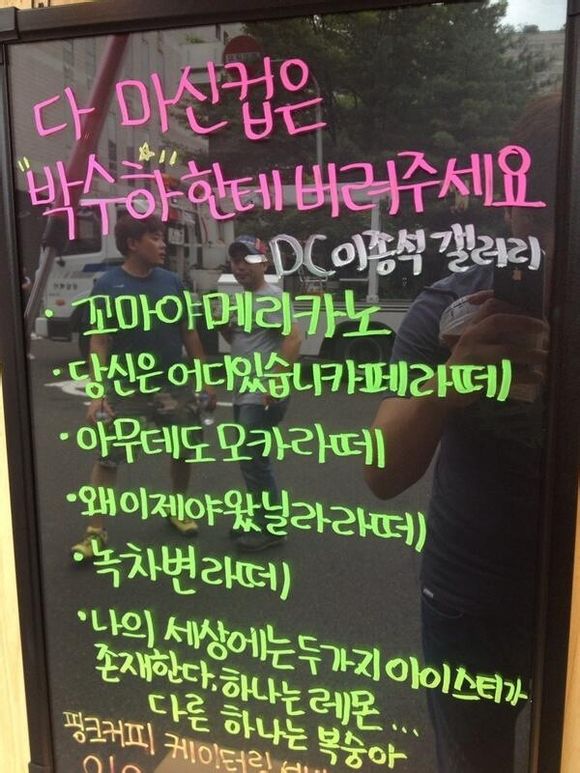 다 마신컵은
"박수하"한테 버려주세요
DC이종석 갤러리
· 꼬마야메리카노
· 당신은 어디있습니카페라떼
· 아무데도 모카라떼
· 왜이제야왔닐라라떼
· 녹차변라떼
· 나의 세상에는 두가지 아이스티가
존재한다. 하나는 레몬...
다른 하나는 복숭아
핑크커피 케이터링